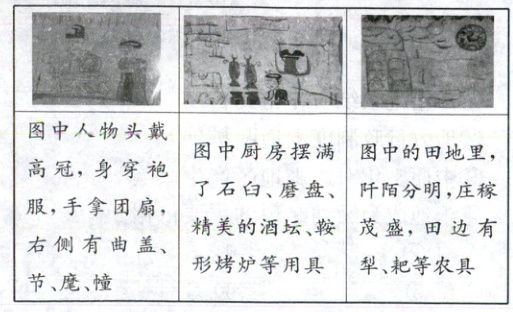 图中人物头戴
高冠,身穿袍
服,手拿团扇,
右侧有曲盖、
节、麾、幢
图中厨房摆满
了石臼、磨盘、
精美的酒坛、鞍
形烤炉等用具
图中的田地里,
阡陌分明,庄稼
茂盛,田边有
犁、耙等农具